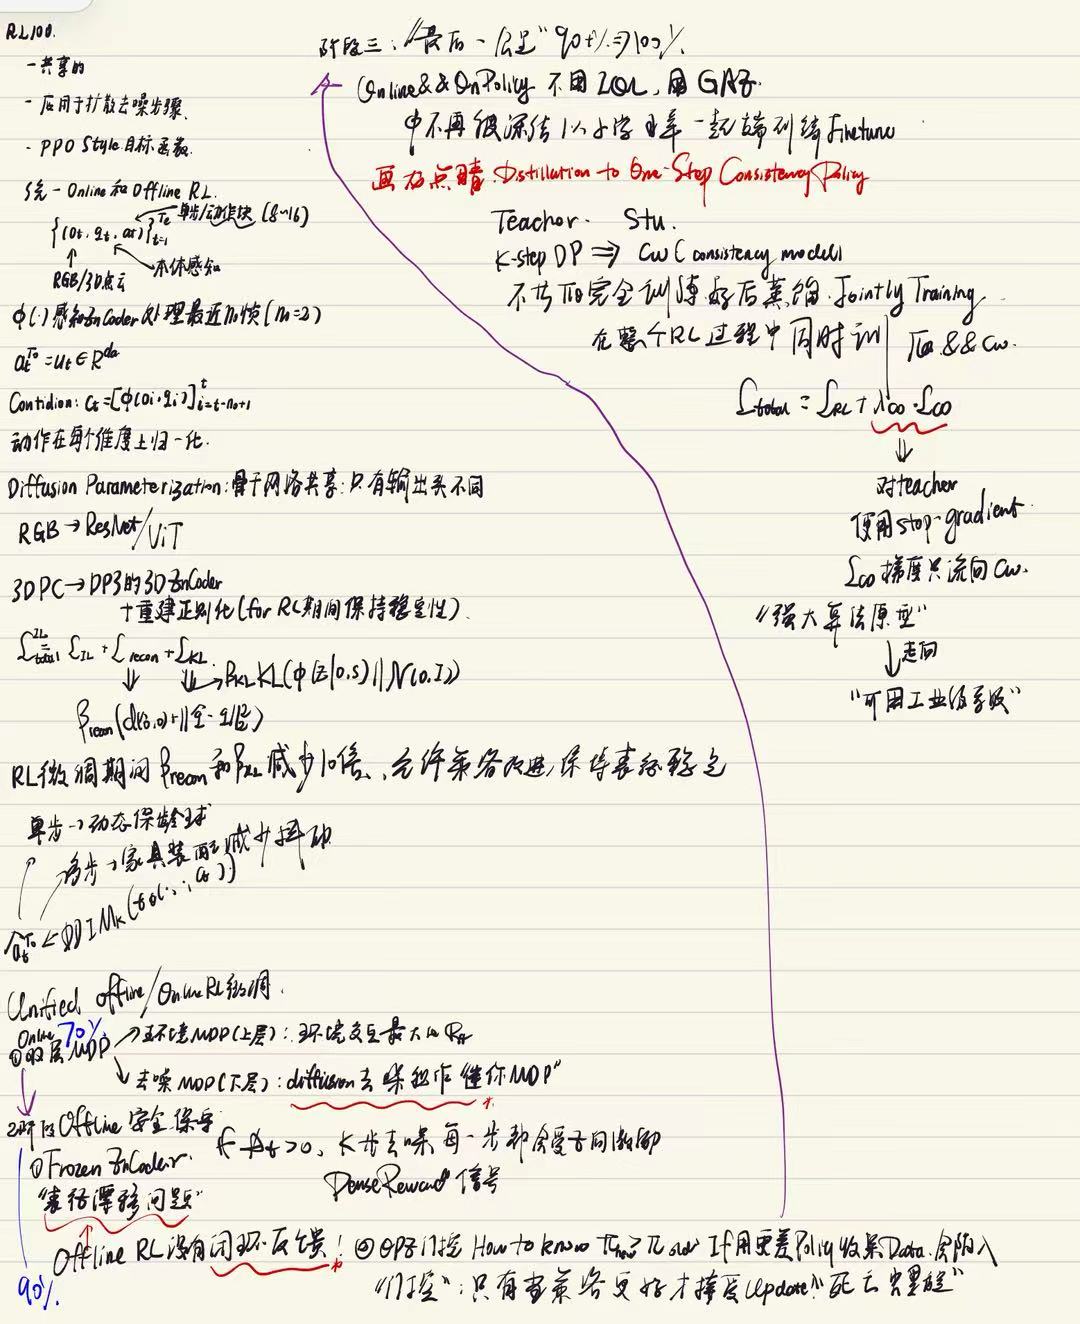 RL100.
- 共享的
- 应用于扩散去噪步骤.
- PPO Style 目标函数.
统一 Online 和 Offline RL.
{(ot, qt, at)}Te t=1 单步/动作块 (8~16)
RGB/3D点云 本体感知
φ(·) 感知EnCoder处理最近n0帧(n=2)
at^T0 = ut ∈ R^da
Contidion: Ct = [φ(oi, qi)]^t i=t-n0+1
动作在每个维度上归一化.
Diffusion Parameterization: 骨干网络共享: 只有输出头不同
RGB → ResNet/ViT
3D PC → DP3的3D EnCoder
+重建正则化(for RL期间保持稳定性).
L^IL total = L IL + L recon + L KL.
βKL KL(φ(z|o,s) || N(0,I))
βrecon(d(ô,o)+||q̂-q||²)
RL微调期间βrecon和βKL减少10倍、允许策略改进,保持表征稳定
单步→动态保龄球
多步→家具装配,减少抖动
at^T0 ← DDIMk(εθ(·,·,Ct))
Unified offline/Online RL微调.
Online 70%
①双层MDP →环境MDP(上层): 环境交互最大化
↘去噪MDP(下层): diffusion去噪视作"迷你MDP"
2阶段Offline 安全保守
If At>0, K步去噪每一步都会受正向激励
DenseReward信号
①Frozen EnCoder.
"表征漂移问题"
Offline RL没有闭环反馈!
②OPE门控 How to know πnew>πold If用更差Poliy收集Data,会陷入
"门控": 只有当策略更好才接受Update! "死亡螺旋"
90%
阶段三: "最后一公里" 90+%⇒100%
Online&&OnPolicy 不用IQL, 用GAE.
φ不再被冻结 以小学习率一起端到端Finetune
画龙点睛: Distillation to One-Step Consistency Policy
Teacher. Stu.
K-step DP ⇒ Cw (consistency model)
不是πθ完全训练好后蒸馏. Jointly Training
在整个RL过程中同时训 πθ && Cw.
Ltotal = LRL + λCD · LCD
对teacher
使用stop-gradient.
LCD梯度只流向Cw.
"强大算法原型"
↓走向
"可用工业级系统"